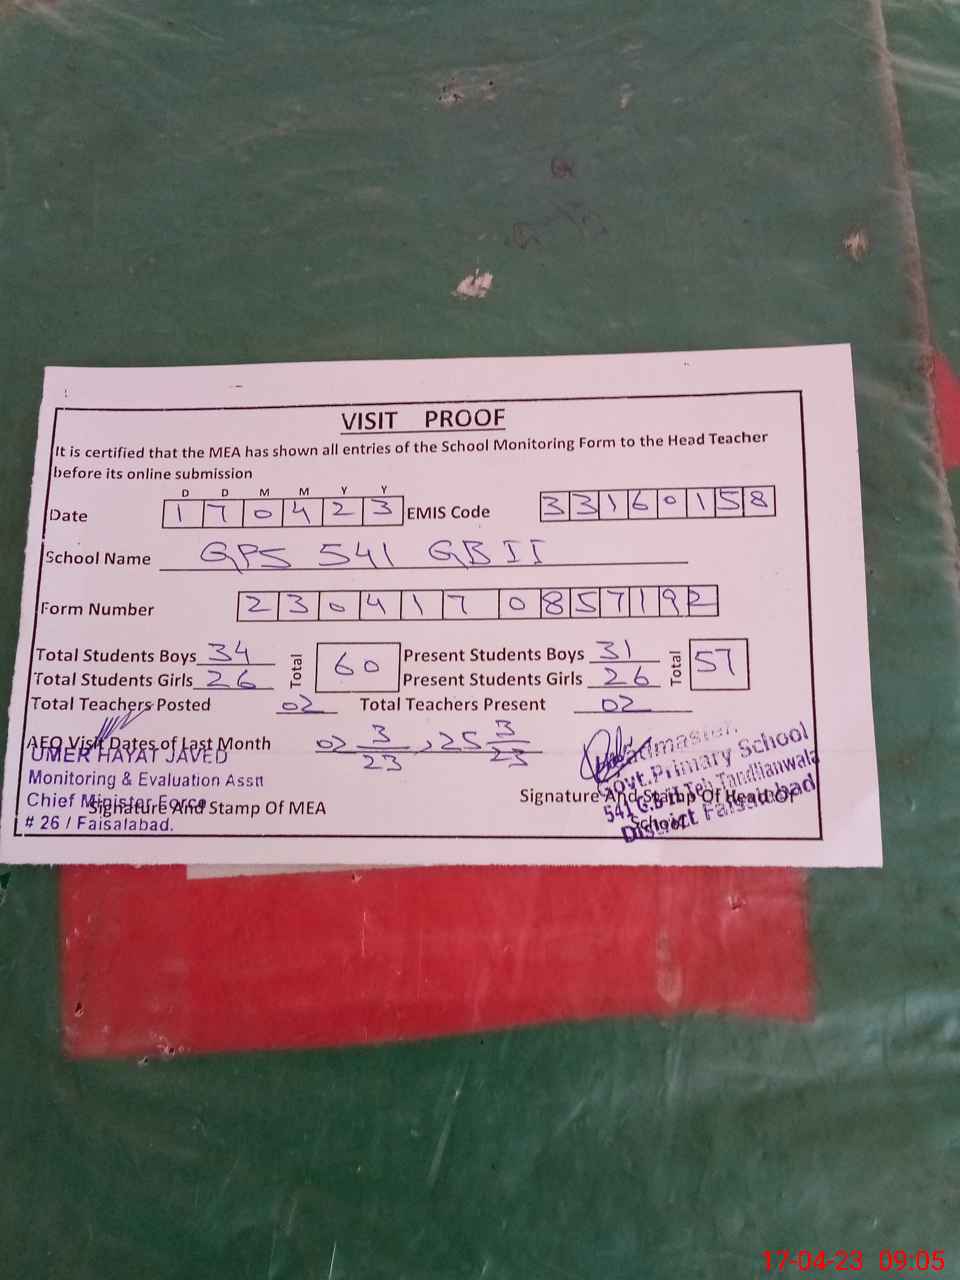 VISIT PROOF
It is certified that the MEA has shown all entries of the School Monitoring Form to the Head Teacher
before its online submission
D D M M Y Y
Date 170423 EMIS Code 33160158
School Name GPS 541 GB II
Form Number 230417 0857192
Total Students Boys 34 Total 60 Present Students Boys 31 Total 57
Total Students Girls 26 Present Students Girls 26
Total Teachers Posted 02 Total Teachers Present 02
AEO Visit Dates of Last Month 02 3/23, 25 3/23
UMER HAYAT JAVED
Monitoring & Evaluation Asstt
Chief Minister Force
# 26 / Faisalabad.
Signature And Stamp Of MEA
Headmaster.
Govt.Primary School
541 G.B II Teh Tandlianwala
District Faisalabad
Signature And Stamp Of Head Of
School
17-04-23 09:05